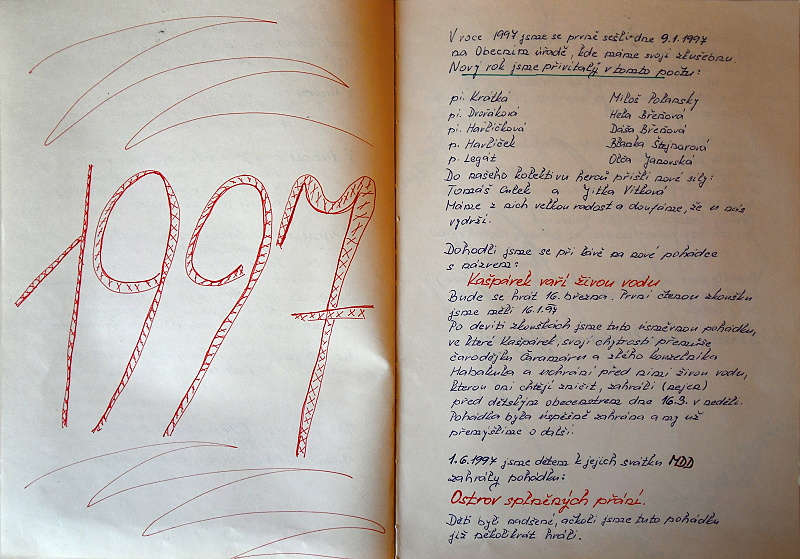 1997
V roce 1997 jsme se prvně sešli dne 9.1.1997
na Obecním úřadě, kde máme svoji zkušebnu.
Nový rok jsme přivítaly v tomto počtu:
pí. Krátká Miloš Polanský
pí. Dvořáková Hela Břeňová
pí. Havlíčková Dáša Břeňová
p. Havlíček Blanka Štejnarová
p. Legát Olča Janovská
Do našeho kolektivu herců přišli nové síly:
Tomáš Culek a Jitka Vítková
Máme z nich velkou radost a doufáme, že u nás
vydrží.
Dohodli jsme se při kávě na nové pohádce
s názvem:
Kašpárek vaří živou vodu
Bude se hrát 16. března. První čtenou zkoušku
jsme měli 16.1.97
Po devíti zkouškách jsme tuto úsměvnou pohádku,
ve které Kašpárek, svojí chytrostí přemůže
čarodějku Čaramáru a zlého kouzelníka
Habakuka a uchrání před nimi živou vodu,
kterou oni chtějí zničit, zahráli (nejen)
před dětským obecenstvem dne 16.3. v neděli.
Pohádka byla úspěšně zahrána a my už
přemýšlíme o další.
1.6.1997 jsme dětem k jejich svátku MDD
zahráli pohádku:
Ostrov splněných přání.
Děti byli nadšené, ačkoli jsme tuto pohádku
již několikrát hráli.